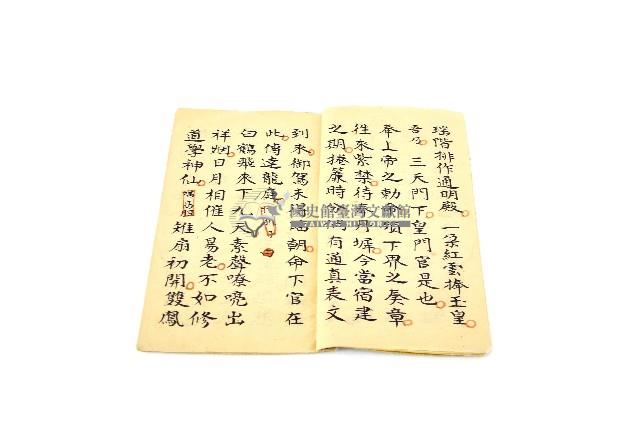 瑤階排作通明殿 一朵紅雲捧玉皇
吾乃 三天門下皇門官是也
奉上帝之勅命 下界之奏章
往來紫禁待 墀今當宿建
之期捲簾時分 有通真表文
到來御駕未臨 朝命下官在
此傳達龍庭
白鶴飛來下九天素聲嘹喨出
祥烟日月相催人易老不如修
道學神仙 雉扇初開雙鳳
國史館臺灣文獻館
TAIWAN HISTORICA